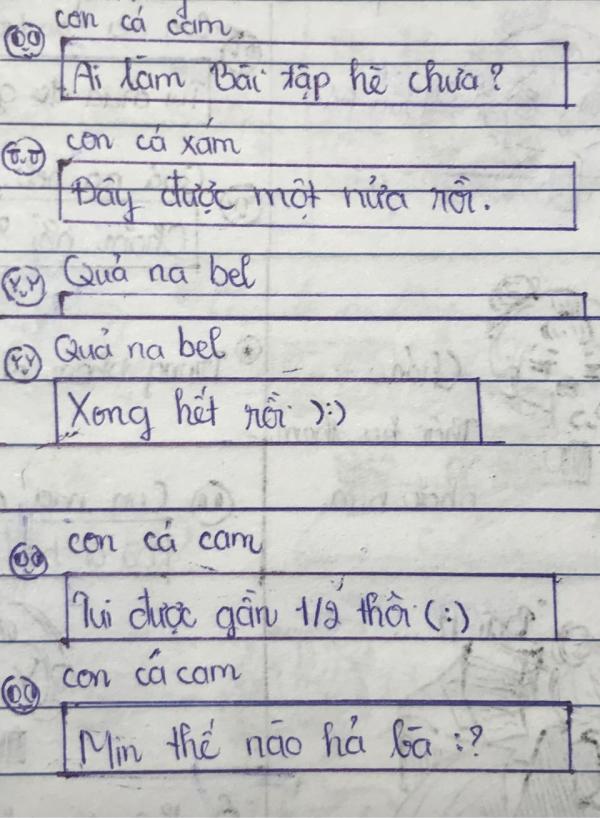 con cá cam
Ai làm Bài tập hè chưa?
con cá xám
Đây được một nửa rồi.
Quả na bel
Quả na bel
Xong hết rồi :):)
con cá cam
Tui được gần 1/2 thôi (:)
con cá cam
Min thế nào hả bà :?